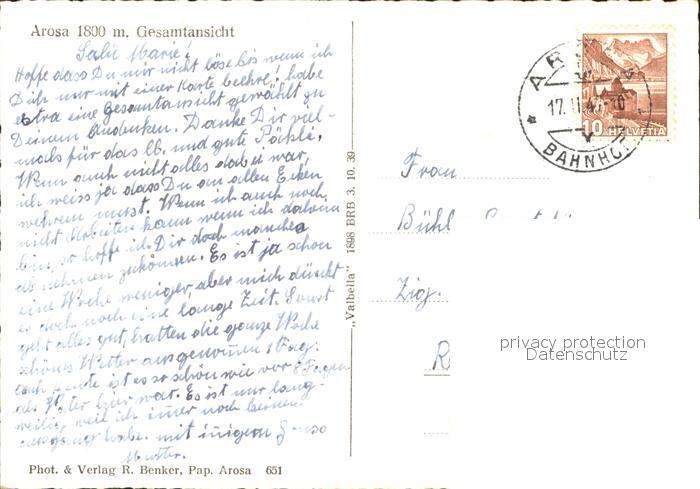 Arosa 1800 m. Gesamtansicht
Salü Marie!
Hoffe dass Du mir nicht böse bis wenn ich
Dich nur mit einer Karte beehre, habe
extra eine Gesamtansicht gewählt zu
Deinem Andenken. Danke Dir viel-
mals für das lb. und gute Päckli.
Wenn auch nicht alles dabei war,
ich weiss ja dass Du an allen Ecken
wehren must. Wenn ich auch noch
nicht Arbeiten kann wenn ich daheim
bin, so hoffe ich Dir doch manches
ab nehmen zu können. Es ist ja schon
eine Woche weniger, aber mich dünckt
es doch noch eine lange Zeit. Sonst
geht alles gut, hatten die ganze Woche
schönes Wetter ausgenommen 1 Tag.
auch heute ist es so schön wie vor 8 Tagen
als Vater hier war. Es ist nur lang-
weilig weil ich immer noch keinen
ausgang habe. mit innigem Gruss
Mutter.
Phot. & Verlag R. Benker, Pap. Arosa 651
"Valbella" 1898 BRB 3. 10. 39
AROSA
17. II. 4
BAHNHOF
10 HELVETIA
Frau
Bühl
Zig.
R
privacy protection
Datenschutz